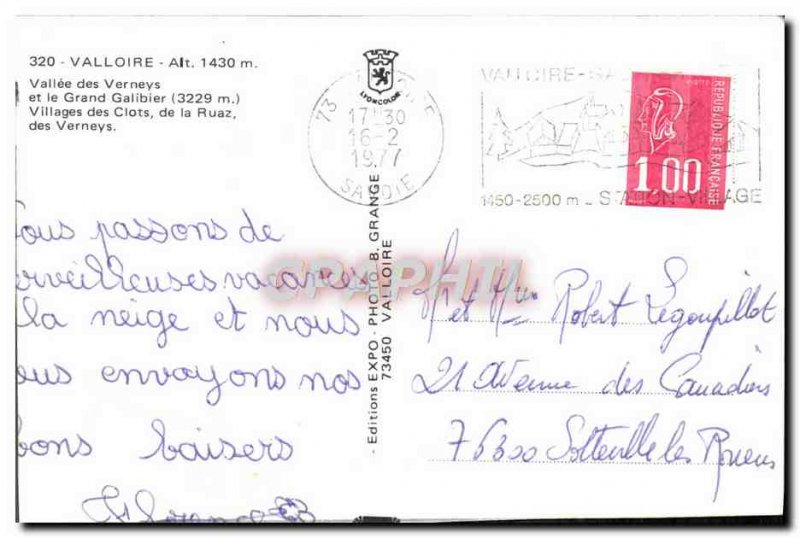 320 - VALLOIRE - Alt. 1430 m.
Vallée des Verneys
et le Grand Galibier (3229 m.)
Villages des Clots, de la Ruaz,
des Verneys.
LYONCOLOR
73
17 30
16-2
1977
SAVOIE
VALLOIRE-
1450-2500 m - STATION-VILLAGE
RÉPUBLIQUE FRANÇAISE
1,00
ous passons de
erveilleuses vacances
la neige et nous
ous envoyons nos
bons baisers
Florence
- Editions EXPO - PHOTO B. GRANGE
73450 VALLOIRE
CPAPHIL
Mr et Mme Robert Legoupillot
21 Avenue des Canadiens
76300 Sotteville les Rouens